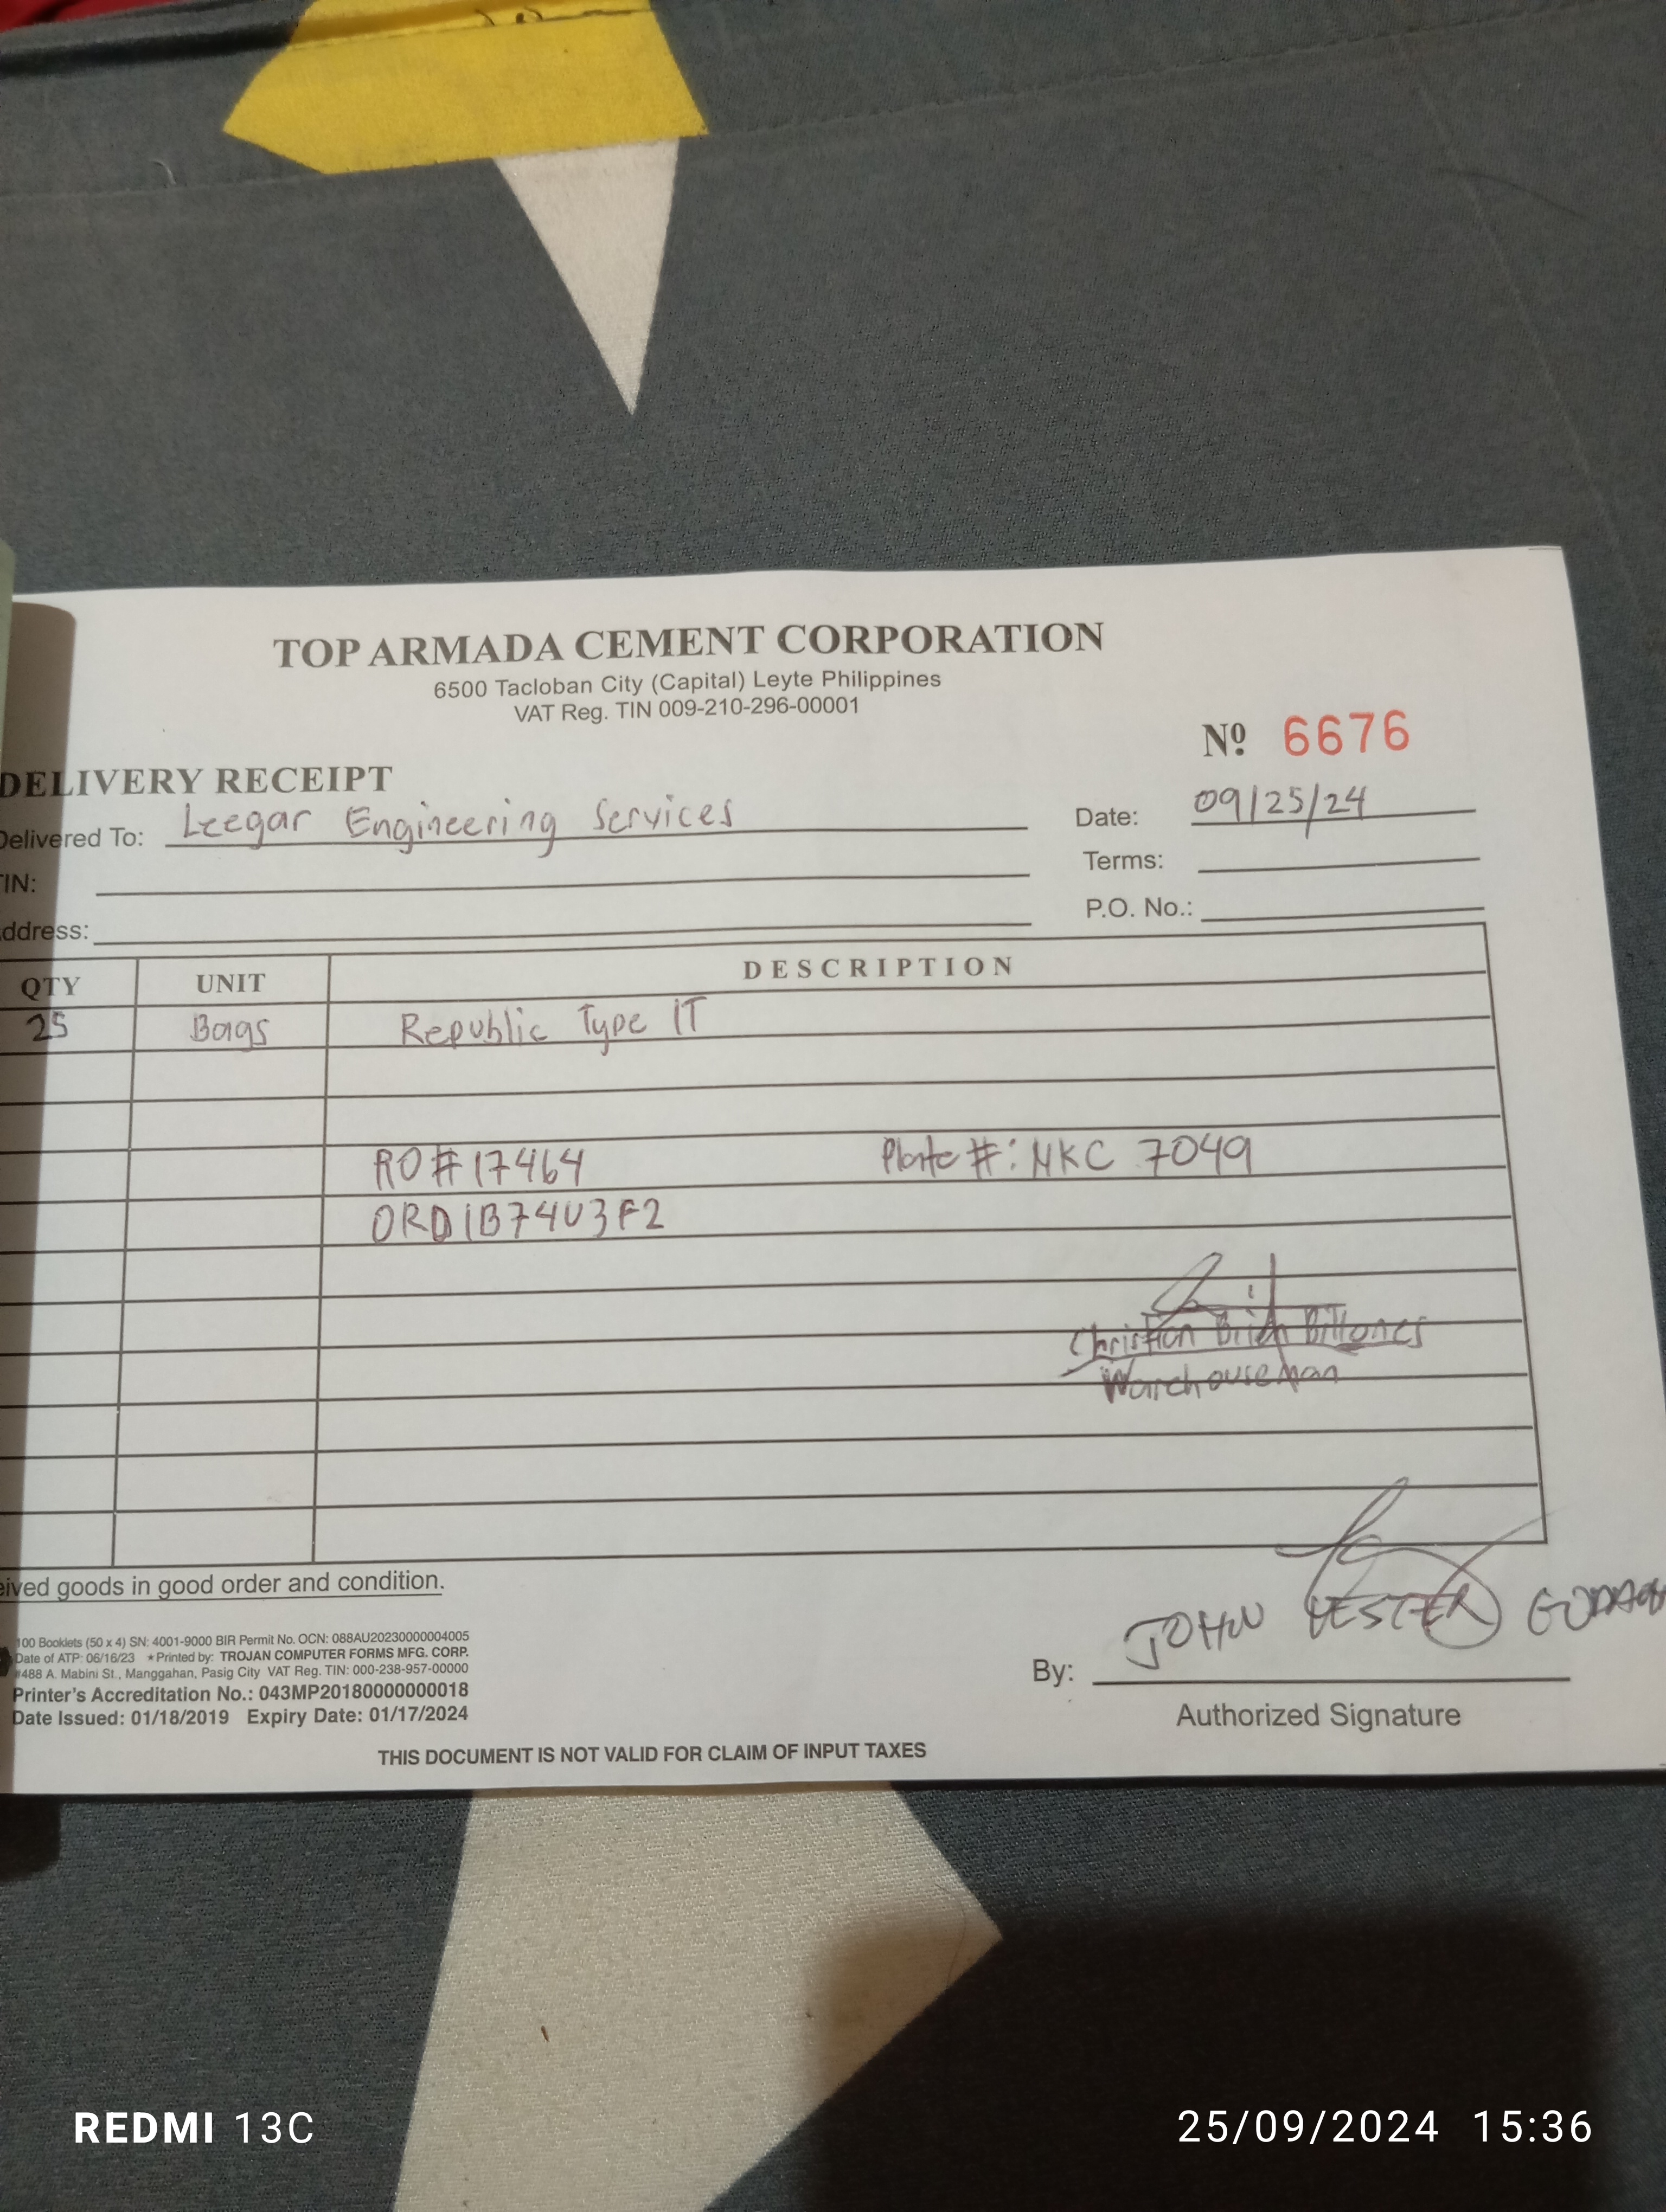 TOP ARMADA CEMENT CORPORATION
6500 Tacloban City (Capital) Leyte Philippines
VAT Reg. TIN 009-210-296-00001
Nº 6676
DELIVERY RECEIPT
Delivered To: Leegar Engineering Services
Date: 09/25/24
TIN:
Terms:
Address:
P.O. No.:
QTY UNIT DESCRIPTION
25 Bags Republic Type 1T
RO#17464 Plate #: NKC 7049
ORD1B74U3F2
Christian Brian Billones
Warehouseman
eived goods in good order and condition.
100 Booklets (50 x 4) SN: 4001-9000 BIR Permit No. OCN: 088AU20230000004005
Date of ATP: 06/16/23 ★Printed by: TROJAN COMPUTER FORMS MFG. CORP.
#488 A. Mabini St., Manggahan, Pasig City VAT Reg. TIN: 000-238-957-00000
Printer's Accreditation No.: 043MP20180000000018
Date Issued: 01/18/2019 Expiry Date: 01/17/2024
JOHN
By:
Authorized Signature
THIS DOCUMENT IS NOT VALID FOR CLAIM OF INPUT TAXES
REDMI 13C
25/09/2024 15:36